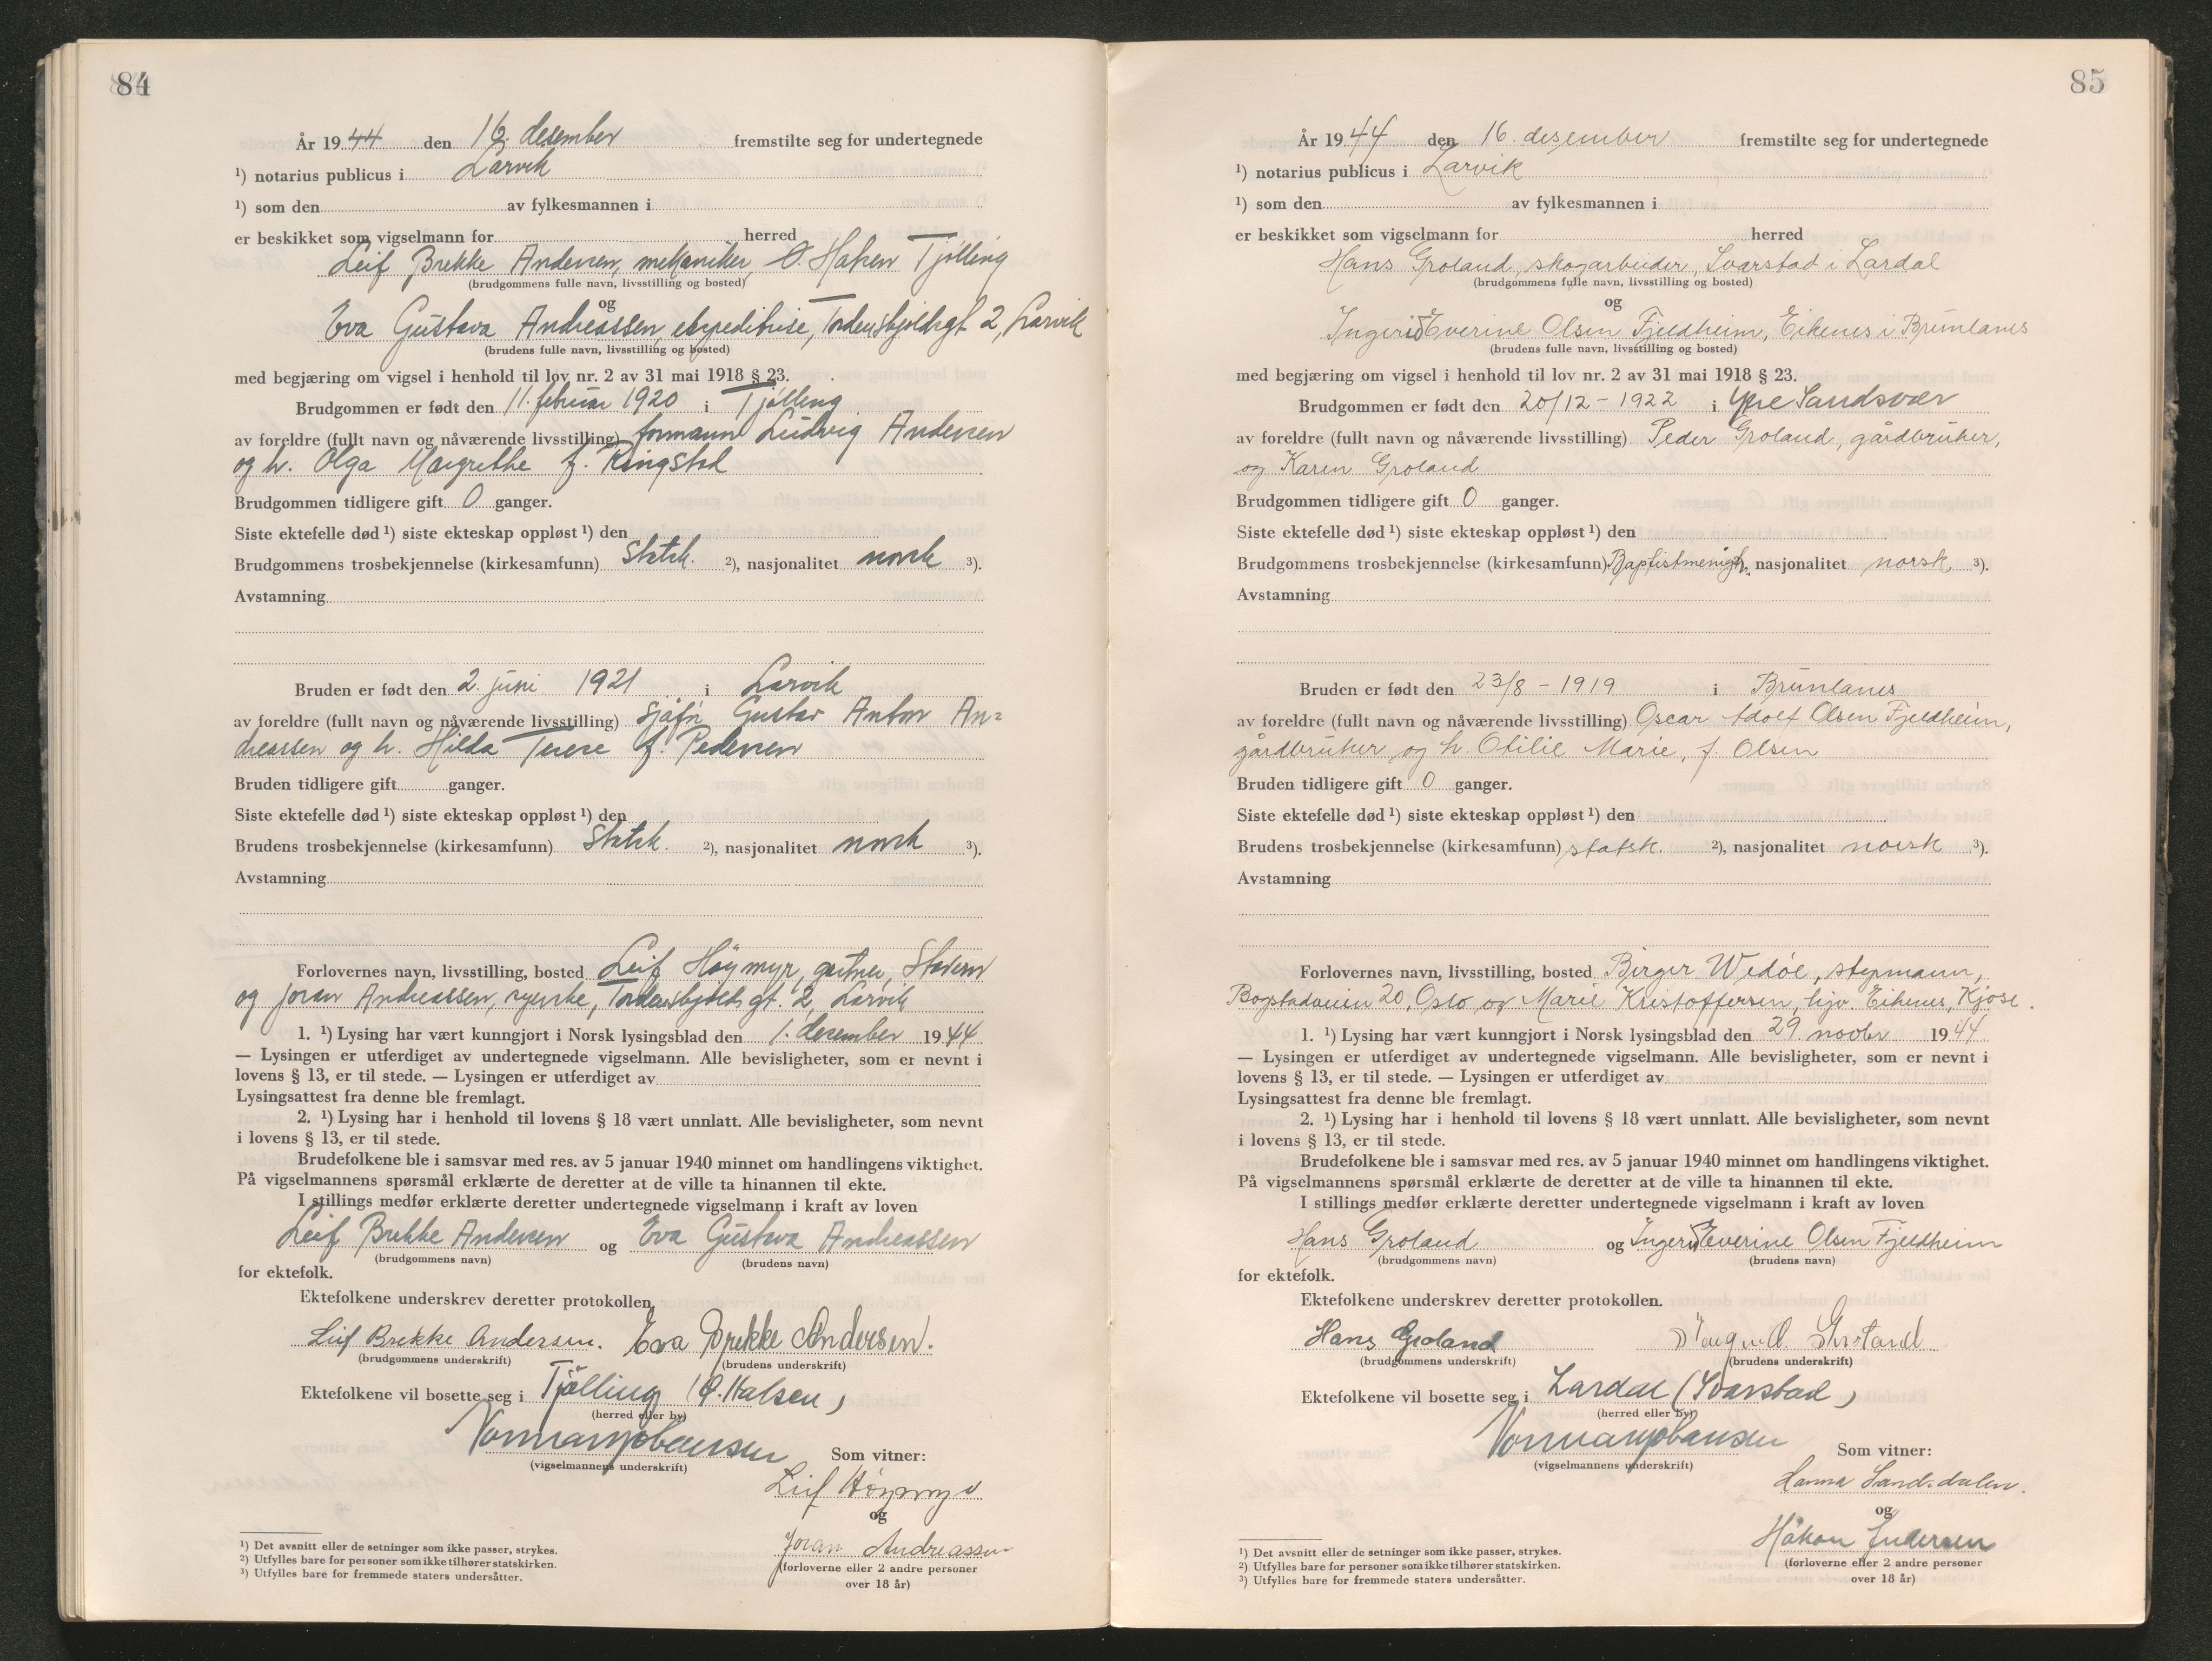 84
År 1944 den 16. desember fremstilte seg for undertegnede
¹) notarius publicus i Larvik
¹) som den av fylkesmannen i
er beskikket som vigselmann for herred
Leif Brekke Andersen, mekaniker, Ø. Halsen Tjølling
(brudgommens fulle navn, livsstilling og bosted)
og
Eva Gustava Andreassen, ekspeditrise, Tordenskjoldsgt 2, Larvik
(brudens fulle navn, livsstilling og bosted)
med begjæring om vigsel i henhold til lov nr. 2 av 31 mai 1918 § 23.
Brudgommen er født den 11. februar 1920 i Tjølling
av foreldre (fullt navn og nåværende livsstilling) formann Ludvig Andersen
og h. Olga Margrethe f. Ringstad
Brudgommen tidligere gift 0 ganger.
Siste ektefelle død ¹) siste ekteskap oppløst ¹) den
Brudgommens trosbekjennelse (kirkesamfunn) Statsk. ²), nasjonalitet norsk ³).
Avstamning
Bruden er født den 2. juni 1921 i Larvik
av foreldre (fullt navn og nåværende livsstilling) Sjåfør Gustav Anton An=
dreassen og h. Hilda Terese f. Pedersen
Bruden tidligere gift ganger.
Siste ektefelle død ¹) siste ekteskap oppløst ¹) den
Brudens trosbekjennelse (kirkesamfunn) Statsk. ²), nasjonalitet norsk ³).
Avstamning
Forlovernes navn, livsstilling, bosted Leif Høymyr, gartner, Stavern
og Joran Andreassen, Tordenskjolds gt. 2, Larvik
1. ¹) Lysing har vært kunngjort i Norsk lysingsblad den 1. desember 1944
— Lysingen er utferdiget av undertegnede vigselmann. Alle bevisligheter, som er nevnt i
lovens § 13, er til stede. — Lysingen er utferdiget av
Lysingsattest fra denne ble fremlagt.
2. ¹) Lysing har i henhold til lovens § 18 vært unnlatt. Alle bevisligheter, som nevnt
i lovens § 13, er til stede.
Brudefolkene ble i samsvar med res. av 5 januar 1940 minnet om handlingens viktighet.
På vigselmannens spørsmål erklærte de deretter at de ville ta hinannen til ekte.
I stillings medfør erklærte deretter undertegnede vigselmann i kraft av loven
Leif Brekke Andersen og Eva Gustava Andreassen
(brudgommens navn) (brudens navn)
for ektefolk.
Ektefolkene underskrev deretter protokollen.
Leif Brekke Andersen. Eva Brekke Andersen.
(brudgommens underskrift) (brudens underskrift)
Ektefolkene vil bosette seg i Tjølling (Ø. Halsen)
(herred eller by)
(vigselmannens underskrift)
Som vitner:
Leif Høymyr
og
Joran Andreassen
(forloverne eller 2 andre personer
over 18 år)
¹) Det avsnitt eller de setninger som ikke passer, strykes.
²) Utfylles bare for personer som ikke tilhører statskirken.
³) Utfylles bare for fremmede staters undersåtter.
85
År 1944 den 16. desember fremstilte seg for undertegnede
¹) notarius publicus i Larvik
¹) som den av fylkesmannen i
er beskikket som vigselmann for herred
Hans Groland, skogarbeider, Svarstad i Lardal
(brudgommens fulle navn, livsstilling og bosted)
og
Ingerid Everine Olsen Fjeldheim, Eikenes i Brunlanes
(brudens fulle navn, livsstilling og bosted)
med begjæring om vigsel i henhold til lov nr. 2 av 31 mai 1918 § 23.
Brudgommen er født den 20/12 - 1922 i Ytre Sandsvær
av foreldre (fullt navn og nåværende livsstilling) Peder Groland, gårdbruker,
og Karen Groland
Brudgommen tidligere gift 0 ganger.
Siste ektefelle død ¹) siste ekteskap oppløst ¹) den
Brudgommens trosbekjennelse (kirkesamfunn) Baptistmenigh. nasjonalitet norsk ³).
Avstamning
Bruden er født den 23/8 - 1919 i Brunlanes
av foreldre (fullt navn og nåværende livsstilling) Oscar Adolf Olsen Fjeldheim,
gårdbruker og h. Otilie Marie, f. Olsen
Bruden tidligere gift 0 ganger.
Siste ektefelle død ¹) siste ekteskap oppløst ¹) den
Brudens trosbekjennelse (kirkesamfunn) statsk. ²), nasjonalitet norsk ³).
Avstamning
Forlovernes navn, livsstilling, bosted Birger Wedøe,
Bogstadveien 20, Oslo og Marie Kristoffersen, hjv. Eikenes, Kjose.
1. ¹) Lysing har vært kunngjort i Norsk lysingsblad den 29 novbr 1944
— Lysingen er utferdiget av undertegnede vigselmann. Alle bevisligheter, som er nevnt i
lovens § 13, er til stede. — Lysingen er utferdiget av
Lysingsattest fra denne ble fremlagt.
2. ¹) Lysing har i henhold til lovens § 18 vært unnlatt. Alle bevisligheter, som nevnt
i lovens § 13, er til stede.
Brudefolkene ble i samsvar med res. av 5 januar 1940 minnet om handlingens viktighet.
På vigselmannens spørsmål erklærte de deretter at de ville ta hinannen til ekte.
I stillings medfør erklærte deretter undertegnede vigselmann i kraft av loven
Hans Groland og Ingerid Everine Olsen Fjeldheim
(brudgommens navn) (brudens navn)
for ektefolk.
Ektefolkene underskrev deretter protokollen.
Hans Groland Groland
(brudgommens underskrift) (brudens underskrift)
Ektefolkene vil bosette seg i Lardal (Svarstad)
(herred eller by)
(vigselmannens underskrift)
Som vitner:
Hanna Sandsdalen.
og
Håkon Andersen
(forloverne eller 2 andre personer
over 18 år)
¹) Det avsnitt eller de setninger som ikke passer, strykes.
²) Utfylles bare for personer som ikke tilhører statskirken.
³) Utfylles bare for fremmede staters undersåtter.